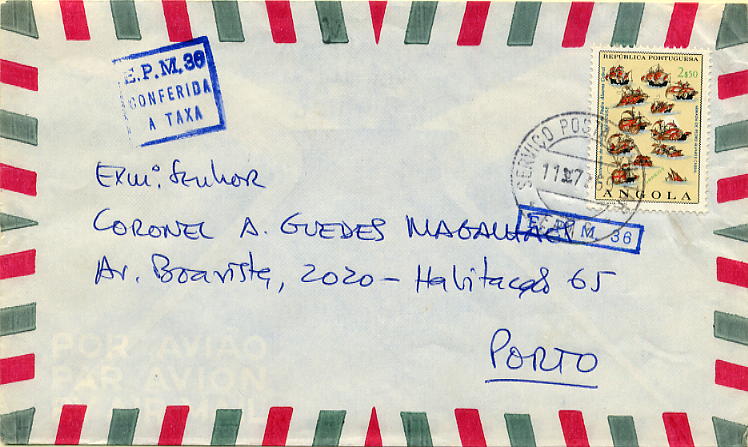 E.P.M. 36
CONFERIDA
A TAXA
REPÚBLICA PORTUGUESA
2$50
ANGOLA
SERVIÇO POSTAL
E.P.M. 36
Exmº. Senhor
CORONEL A. GUEDES MAGALHÃES
Av. Boavista, 2020 - Habitação 65
PORTO
POR AVIÃO
PAR AVION
BY AIR MAIL